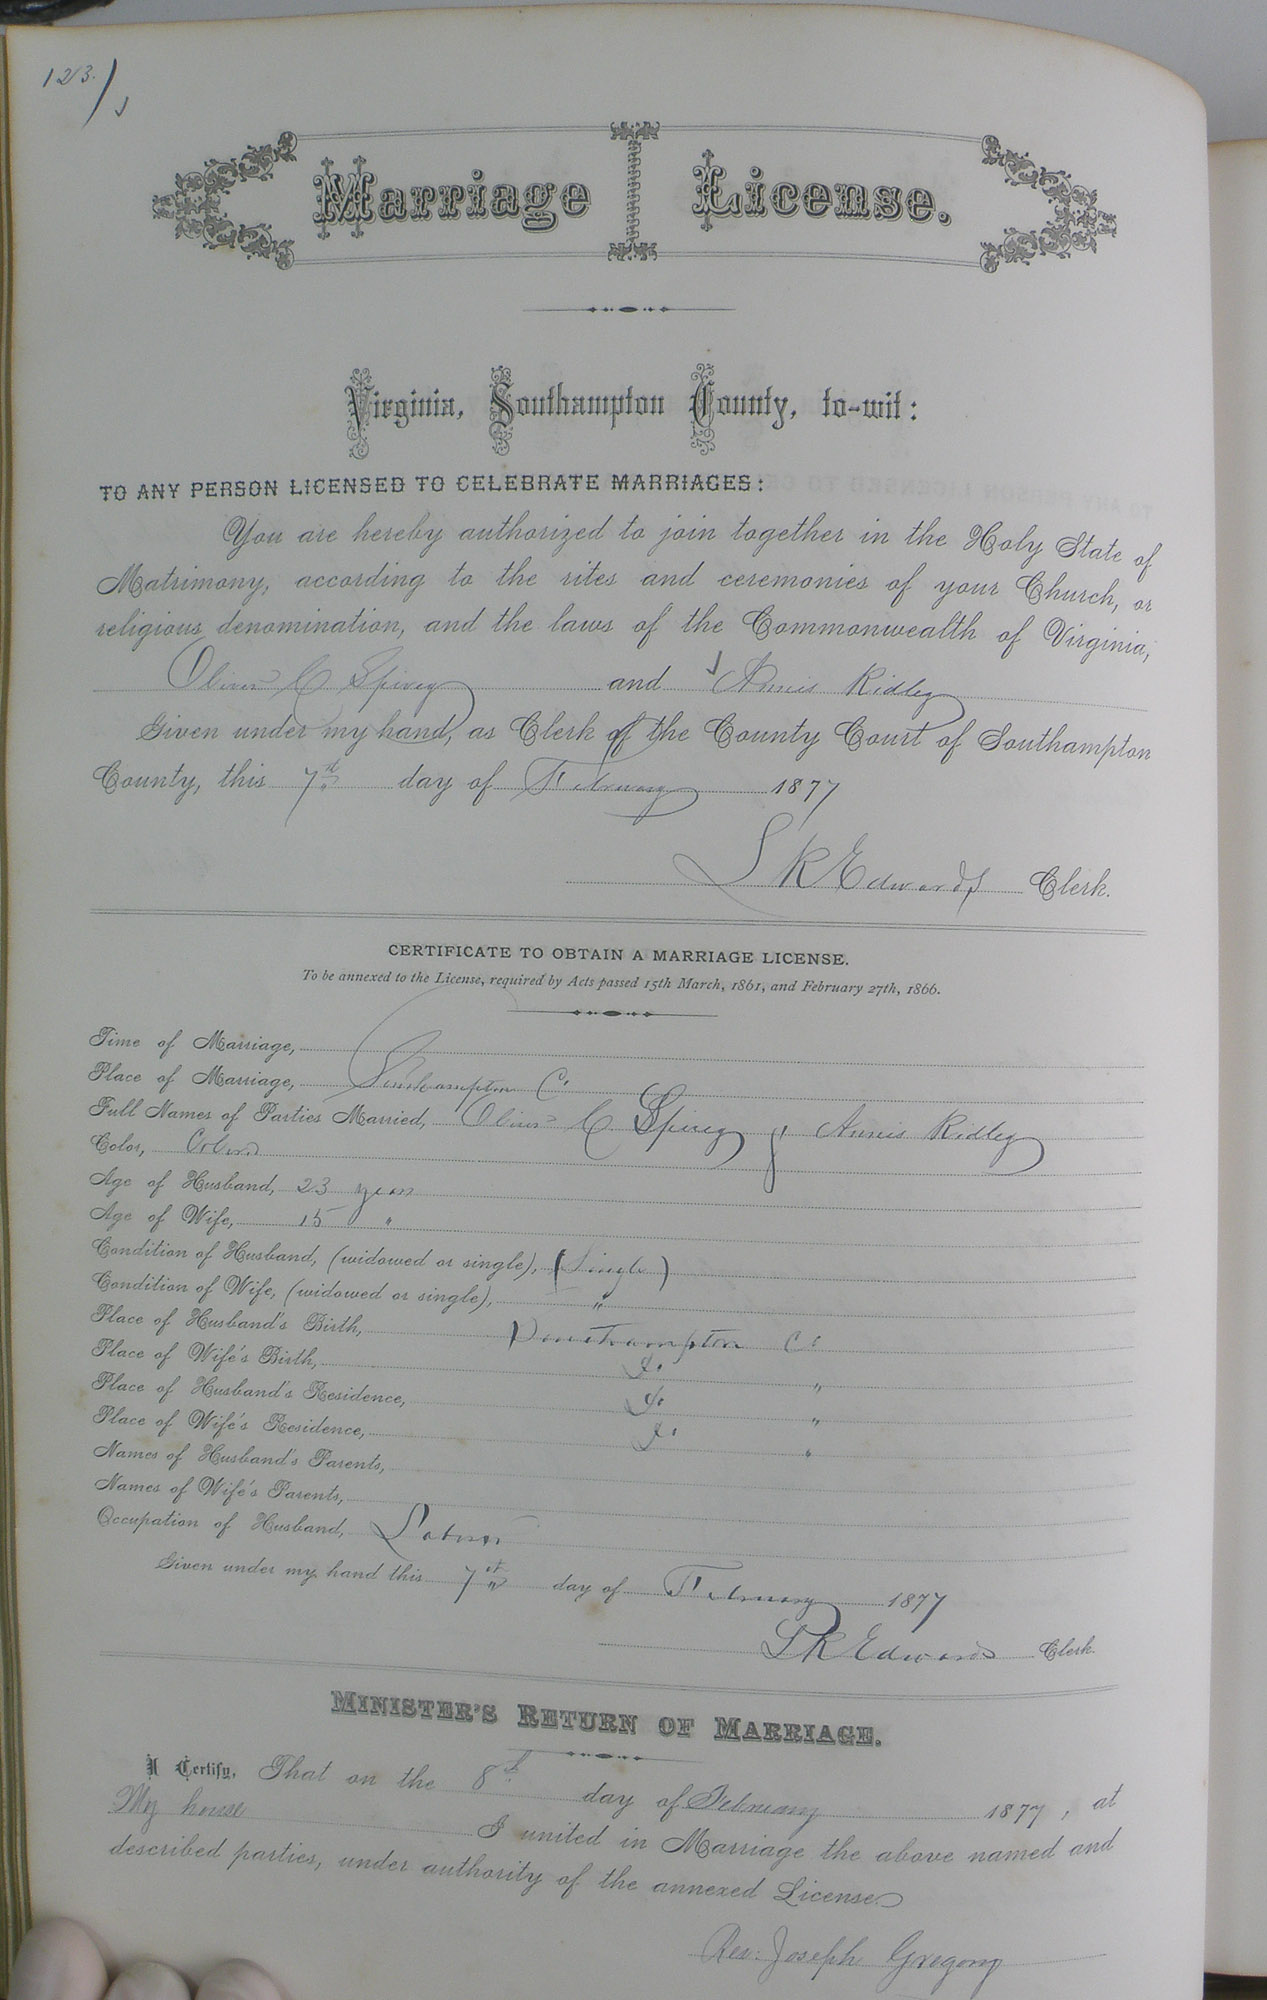 123.
Marriage License.
Virginia, Southampton County, to-wit:
TO ANY PERSON LICENSED TO CELEBRATE MARRIAGES:
You are hereby authorized to join together in the Holy State of
Matrimony, according to the rites and ceremonies of your Church, or
religious denomination, and the laws of the Commonwealth of Virginia,
Oliver C Spivey and Annis Ridley
Given under my hand, as Clerk of the County Court of Southampton
County, this 7th day of February 1877
L R Edwards Clerk.
CERTIFICATE TO OBTAIN A MARRIAGE LICENSE.
To be annexed to the License, required by Acts passed 15th March, 1861, and February 27th, 1866.
Time of Marriage,
Place of Marriage, Southampton Co
Full Names of Parties Married, Oliver C Spivey & Annis Ridley
Color, Colord
Age of Husband, 23 years
Age of Wife, 15 "
Condition of Husband, (widowed or single), (Single)
Condition of Wife, (widowed or single), "
Place of Husband's Birth, Southampton Co
Place of Wife's Birth, Do "
Place of Husband's Residence, Do "
Place of Wife's Residence, Do "
Names of Husband's Parents,
Names of Wife's Parents,
Occupation of Husband, Laborer
Given under my hand this 7th day of February 1877
L R Edwards Clerk.
MINISTER'S RETURN OF MARRIAGE.
I Certify, That on the 8th day of February 1877, at
My house I united in Marriage the above named and
described parties, under authority of the annexed License
Rev: Joseph Gregory